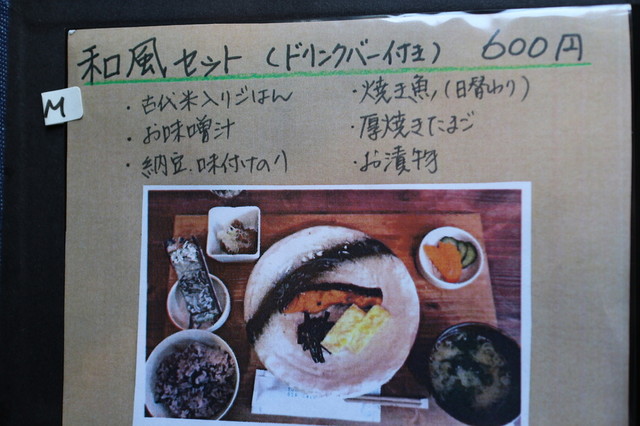 和風セット（ドリンクバー付き） 600円
M
・古代米入りごはん
・お味噌汁
・納豆、味付けのり
・焼き魚（日替わり）
・厚焼きたまご
・お漬物